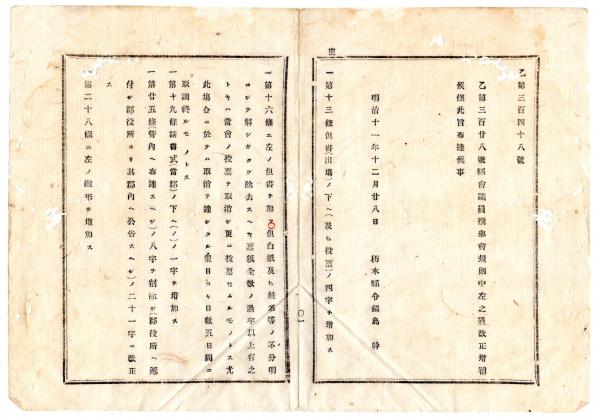 乙第三百四十八號
乙第三百廿八號縣會議員撰擧會規則中左之通改正增補
候條此旨布達候事
明治十一年十二月廿八日　栃木縣令鍋島　幹
一第十三條但書(出塲)ノ下ヘ(及ヒ投票)ノ四字ヲ增加ス
一第十六條ニ左ノ但書ヲ加ス但白紙及ヒ姓名等ノ不分明
ニシテ解シカタク除去スヘキ票紙全數ノ過半以上有之
トキハ當會ノ投票ヲ取消シ更ニ投票セムルモノトス尤
此塲合ニ於テハ取消ヲ達シタル翌日ヨリ日數五日間ニ
取調終ルモノトス
一第十九條請書式(當郡)ノ下ヘ(ノ)ノ一字ヲ增加ス
一第廿五條管內ヘ布達スヘシ)ノ八字ヲ削除シ(郡役所ヘ達
付シ郡役所ヨリ其郡內ヘ公告スヘシ)ノ二十一字ニ改正
ス
一第二十八條ニ左ノ雛形ヲ增加ス